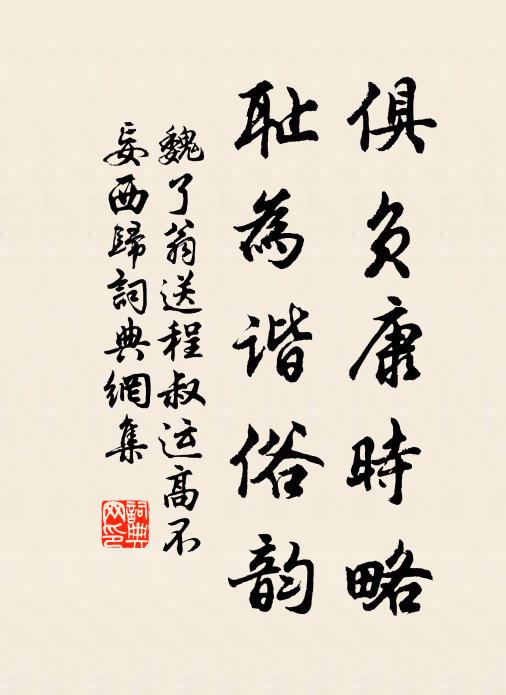 俱負康時略
耻為谐俗韵
魏了翁送程叔运高不
妄西歸詞典網集
詞典
网印